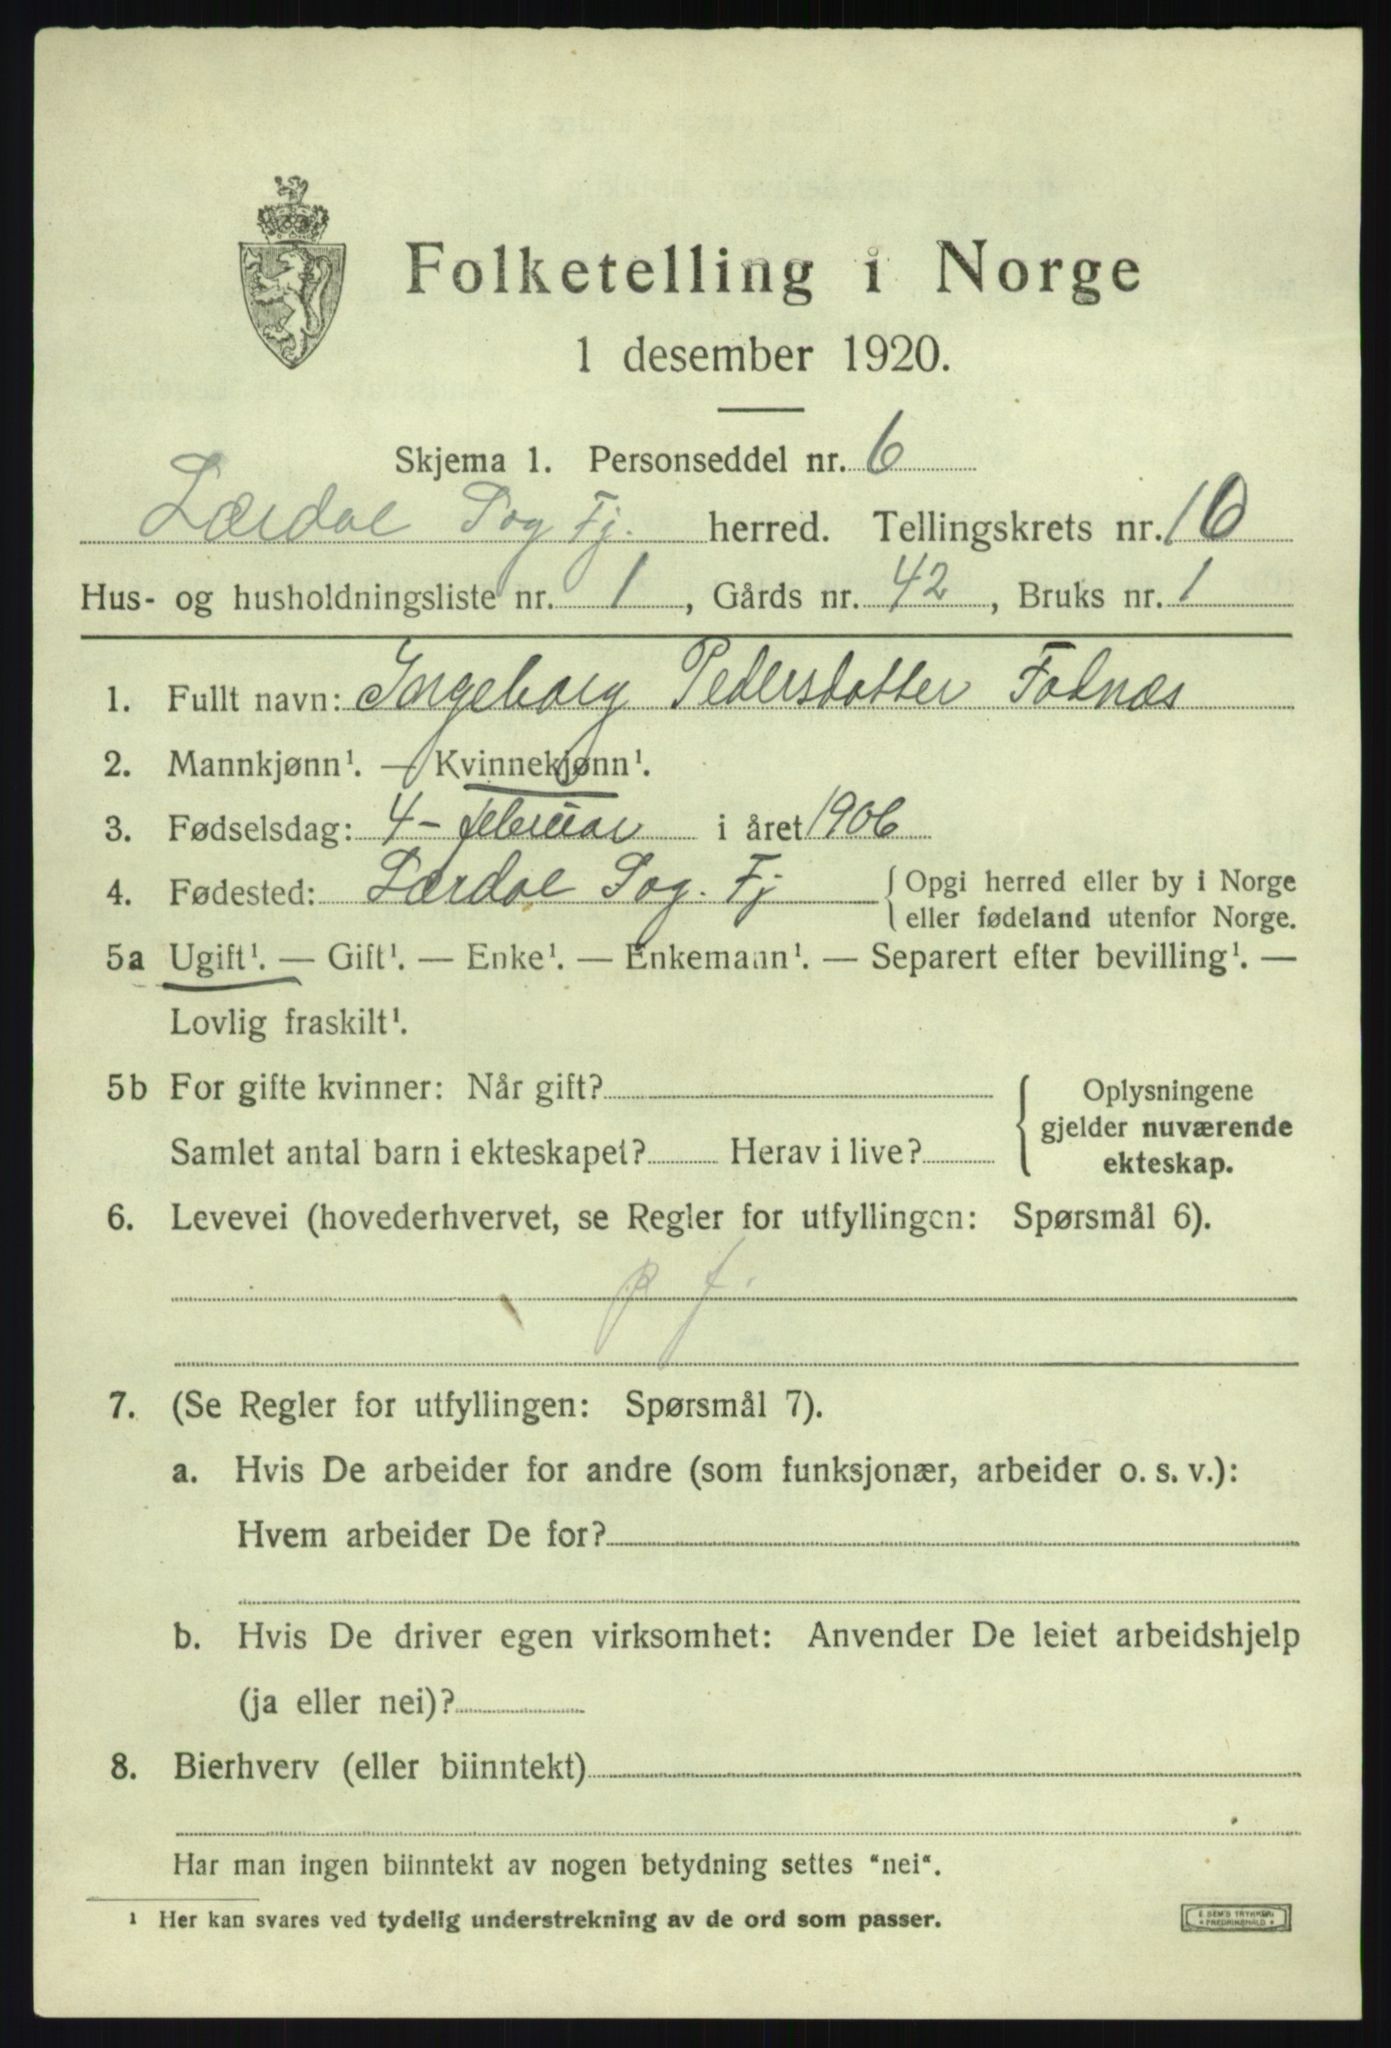 Folketelling i Norge
1 desember 1920.
Skjema 1. Personseddel nr. 6
Lærdal Sog Fj. herred. Tellingskrets nr. 10
Hus- og husholdningsliste nr. 1, Gårds nr. 42, Bruks nr. 1
1. Fullt navn: Ingeborg Pedersdotter Fodnæs
2. Mannkjønn¹. — Kvinnekjønn¹.
3. Fødselsdag: 4 - februar i året 1906
4. Fødested: Lærdal Sog. Fj {Opgi herred eller by i Norge
eller fødeland utenfor Norge.
5a Ugift¹. — Gift¹. — Enke¹. — Enkemann¹. — Separert efter bevilling¹. —
Lovlig fraskilt¹.
5b For gifte kvinner: Når gift?
Samlet antal barn i ekteskapet? Herav i live?
{Oplysningene
gjelder nuværende
ekteskap.
6. Levevei (hovederhvervet, se Regler for utfyllingen: Spørsmål 6).
p f.
7. (Se Regler for utfyllingen: Spørsmål 7).
a. Hvis De arbeider for andre (som funksjonær, arbeider o. s. v.):
Hvem arbeider De for?
b. Hvis De driver egen virksomhet: Anvender De leiet arbeidshjelp
(ja eller nei)?
8. Bierhverv (eller biinntekt)
Har man ingen biinntekt av nogen betydning settes "nei".
¹ Her kan svares ved tydelig understrekning av de ord som passer.
E. SEM'S TRYKKERI
FREDRIKSHALD